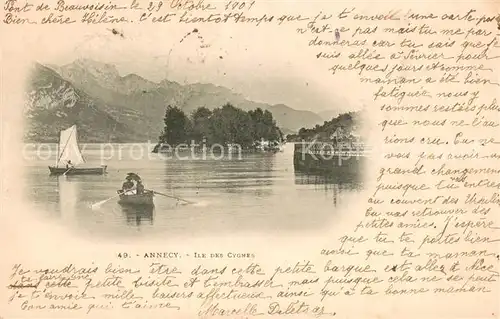 Pont de Beauvoisin le 29 Octobre 1901
Bien chère Hélène. C'est bientôt temps que je t'envoie une carte posta
n'est-ce pas mais tu me par
donneras car tu sais que j'
suis allée à février pour
quelques jours et comme
maman a été bien
fatiguée nous y
sommes restés plus
que nous ne l'au
rions cru. Tu ne
vois pas
grand changement
puisque tu entres
au couvent des Ursulin
tu vas retrouver des
petites amies. J'espère
que tu te portes bien
ainsi que ta maman.
49. - ANNECY. - ILE DES CYGNES
Je voudrais bien être dans cette petite barque et allez à Nice
te faire une petite visite et t'embrasser mais puisque cela ne se peut
je t'envoie mille baisers affectueux ainsi qu'à ta bonne maman
ton amie qui t'aime
Marcelle